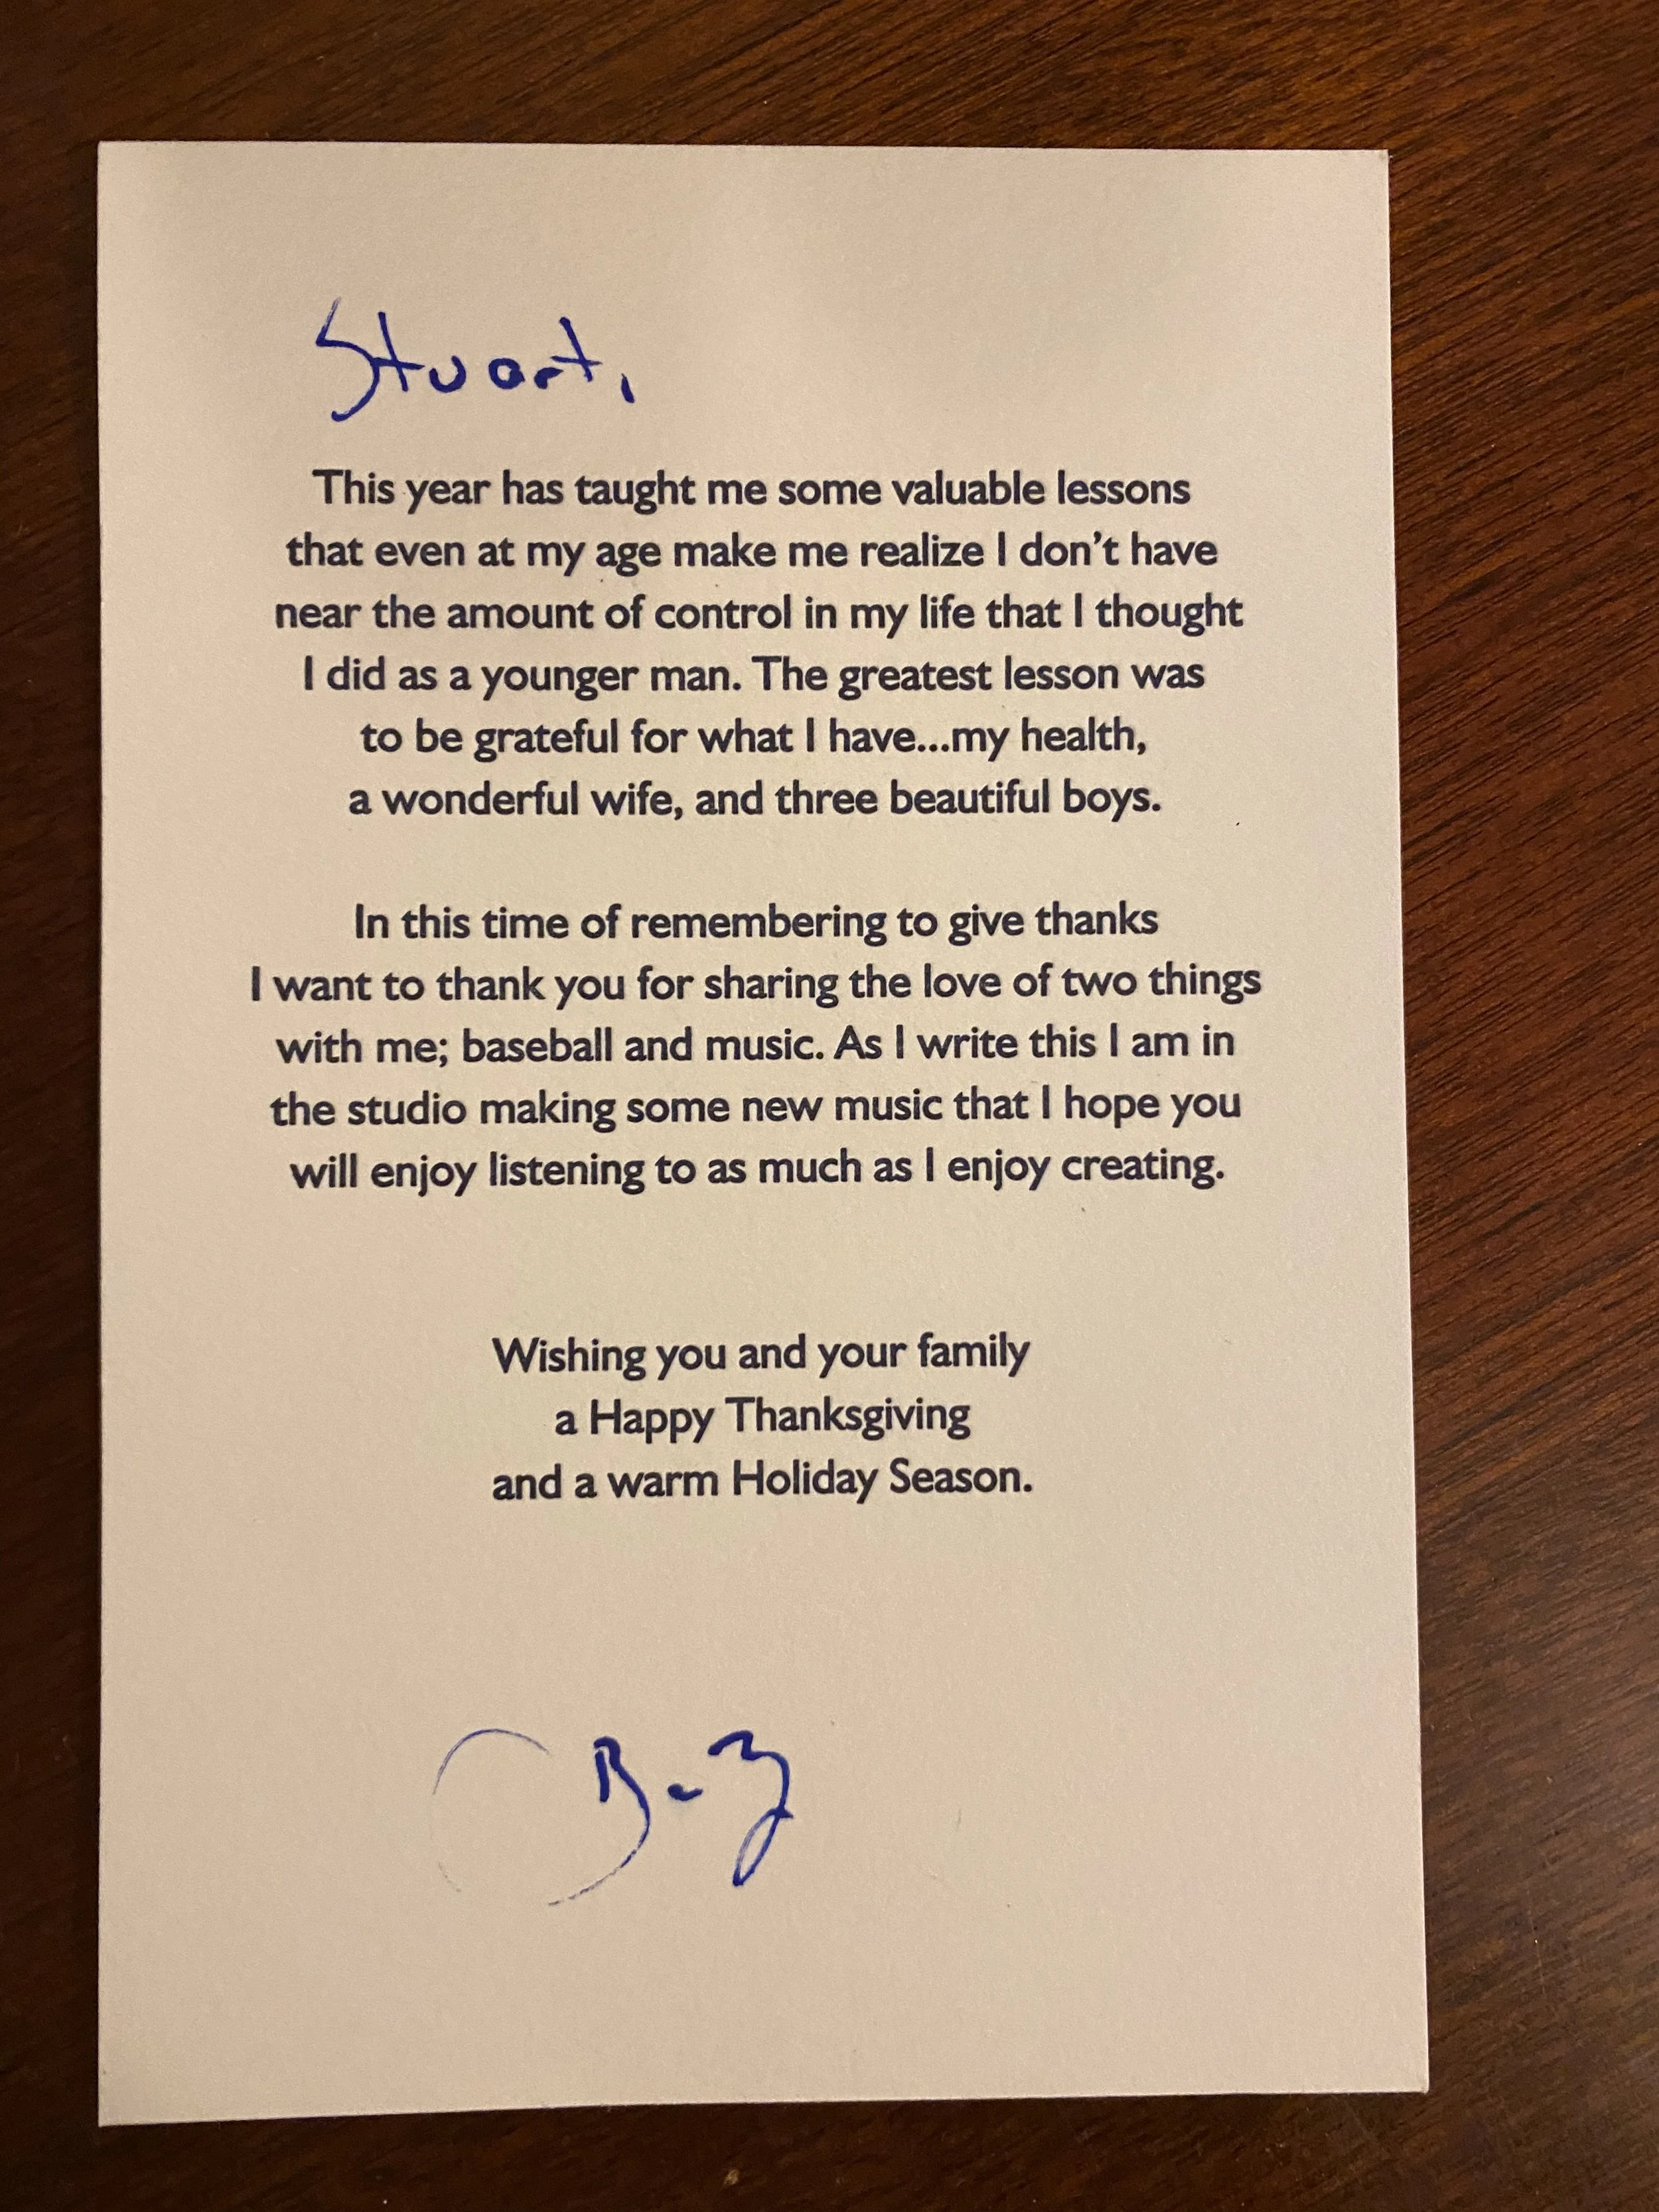 Stuart,
This year has taught me some valuable lessons
that even at my age make me realize I don’t have
near the amount of control in my life that I thought
I did as a younger man. The greatest lesson was
to be grateful for what I have...my health,
a wonderful wife, and three beautiful boys.
In this time of remembering to give thanks
I want to thank you for sharing the love of two things
with me; baseball and music. As I write this I am in
the studio making some new music that I hope you
will enjoy listening to as much as I enjoy creating.
Wishing you and your family
a Happy Thanksgiving
and a warm Holiday Season.